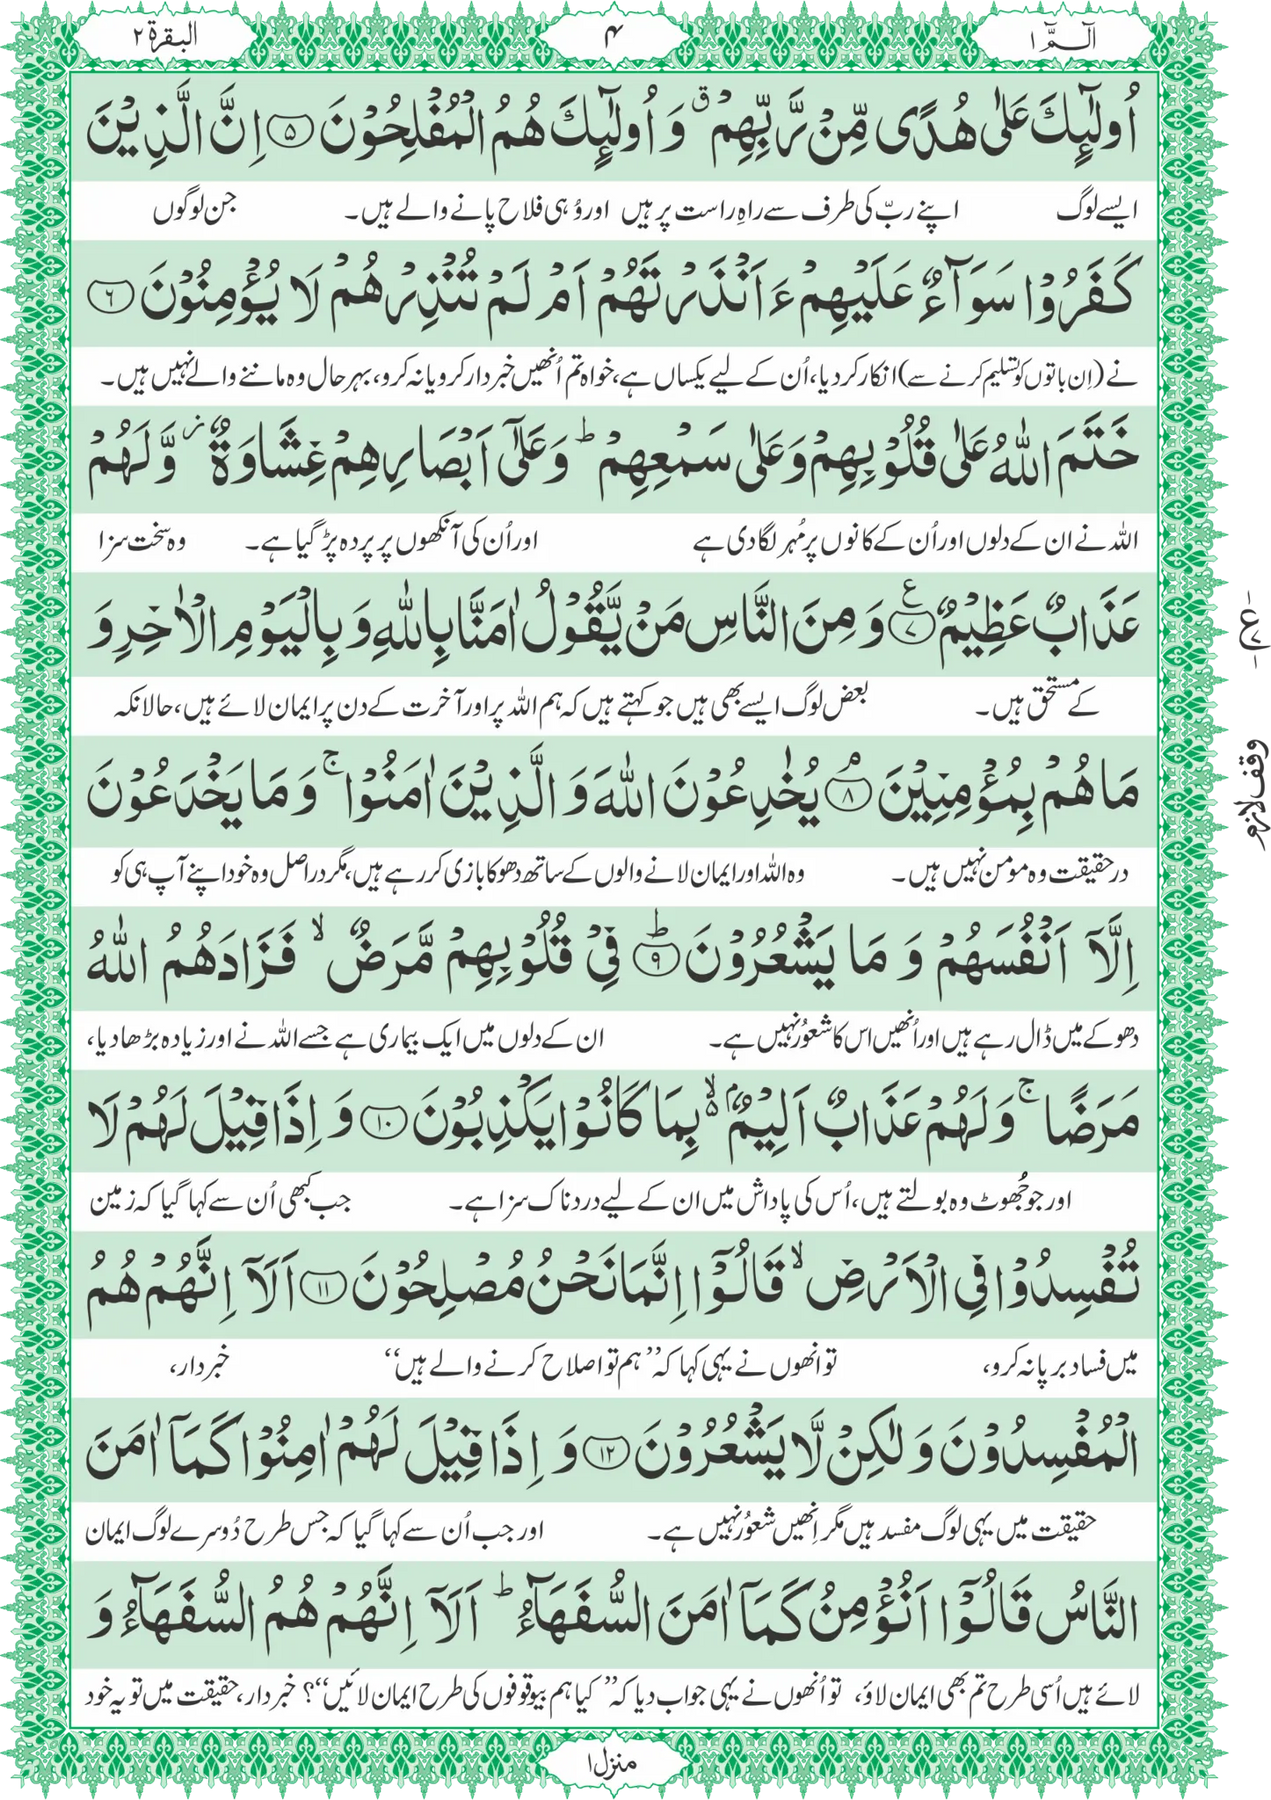 الٓـمّٓ ۱
۴
البقرة ۲
اُولٰٓئِكَ عَلٰى هُدًى مِّنْ رَّبِّهِمْ ۙ ق وَ اُولٰٓئِكَ هُمُ الْمُفْلِحُوْنَ ۝۵ اِنَّ الَّذِيْنَ
ایسے لوگ اپنے ربّ کی طرف سے راہِ راست پر ہیں اور وُہی فلاح پانے والے ہیں۔ جن لوگوں
كَفَرُوْا سَوَآءٌ عَلَيْهِمْ ءَاَنْذَرْتَهُمْ اَمْ لَمْ تُنْذِرْهُمْ لَا يُؤْمِنُوْنَ ۝۶
نے (اِن باتوں کو تسلیم کرنے سے) انکار کر دیا، اُن کے لیے یکساں ہے، خواہ تم اُنھیں خبردار کرو یا نہ کرو، بہر حال وہ ماننے والے نہیں ہیں۔
خَتَمَ اللّٰهُ عَلٰى قُلُوْبِهِمْ وَعَلٰى سَمْعِهِمْ ؕ وَعَلٰٓى اَبْصَارِهِمْ غِشَاوَةٌ ز وَّلَهُمْ
اللہ نے ان کے دلوں اور اُن کے کانوں پر مُہر لگا دی ہے اور اُن کی آنکھوں پر پردہ پڑ گیا ہے۔ وہ سخت سزا
عَذَابٌ عَظِيْمٌ ۝۷ ع وَ مِنَ النَّاسِ مَنْ يَّقُوْلُ اٰمَنَّا بِاللّٰهِ وَ بِالْيَوْمِ الْاٰخِرِ وَ
کے مستحق ہیں۔ بعض لوگ ایسے بھی ہیں جو کہتے ہیں کہ ہم اللہ پر اور آخرت کے دن پر ایمان لائے ہیں، حالانکہ
مَا هُمْ بِمُؤْمِنِيْنَ ۝۸ۘ يُخٰدِعُوْنَ اللّٰهَ وَ الَّذِيْنَ اٰمَنُوْا ۚ وَ مَا يَخْدَعُوْنَ
وقف لازم
در حقیقت وہ مومن نہیں ہیں۔ وہ اللہ اور ایمان لانے والوں کے ساتھ دھوکا بازی کر رہے ہیں، مگر دراصل وہ خود اپنے آپ ہی کو
اِلَّآ اَنْفُسَهُمْ وَ مَا يَشْعُرُوْنَ ۝۹ؕ فِيْ قُلُوْبِهِمْ مَّرَضٌ ۙ فَزَادَهُمُ اللّٰهُ
دھوکے میں ڈال رہے ہیں اور اُنھیں اس کا شعوُر نہیں ہے۔ ان کے دلوں میں ایک بیماری ہے جسے اللہ نے اور زیادہ بڑھا دیا،
مَرَضًا ۚ وَ لَهُمْ عَذَابٌ اَلِيْمٌۢ ۙ۬ بِمَا كَانُوْا يَكْذِبُوْنَ ۝۱۰ وَ اِذَا قِيْلَ لَهُمْ لَا
اور جو جُھوٹ وہ بولتے ہیں، اُس کی پاداش میں ان کے لیے دردناک سزا ہے۔ جب کبھی اُن سے کہا گیا کہ زمین
تُفْسِدُوْا فِي الْاَرْضِ ۙ قَالُوْٓا اِنَّمَا نَحْنُ مُصْلِحُوْنَ ۝۱۱ اَلَآ اِنَّهُمْ هُمُ
میں فساد برپا نہ کرو، تو انھوں نے یہی کہا کہ ’’ہم تو اصلاح کرنے والے ہیں‘‘ خبردار،
الْمُفْسِدُوْنَ وَ لٰكِنْ لَّا يَشْعُرُوْنَ ۝۱۲ وَ اِذَا قِيْلَ لَهُمْ اٰمِنُوْا كَمَآ اٰمَنَ
حقیقت میں یہی لوگ مفسد ہیں مگر اِنھیں شعوُر نہیں ہے۔ اور جب اُن سے کہا گیا کہ جس طرح دُوسرے لوگ ایمان
النَّاسُ قَالُوْٓا اَنُؤْمِنُ كَمَآ اٰمَنَ السُّفَهَآءُ ؕ اَلَآ اِنَّهُمْ هُمُ السُّفَهَآءُ وَ
لائے ہیں اُسی طرح تم بھی ایمان لاؤ، تو اُنھوں نے یہی جواب دیا کہ ’’کیا ہم بیوقوفوں کی طرح ایمان لائیں‘‘؟ خبردار، حقیقت میں تو یہ خود
منزل ۱